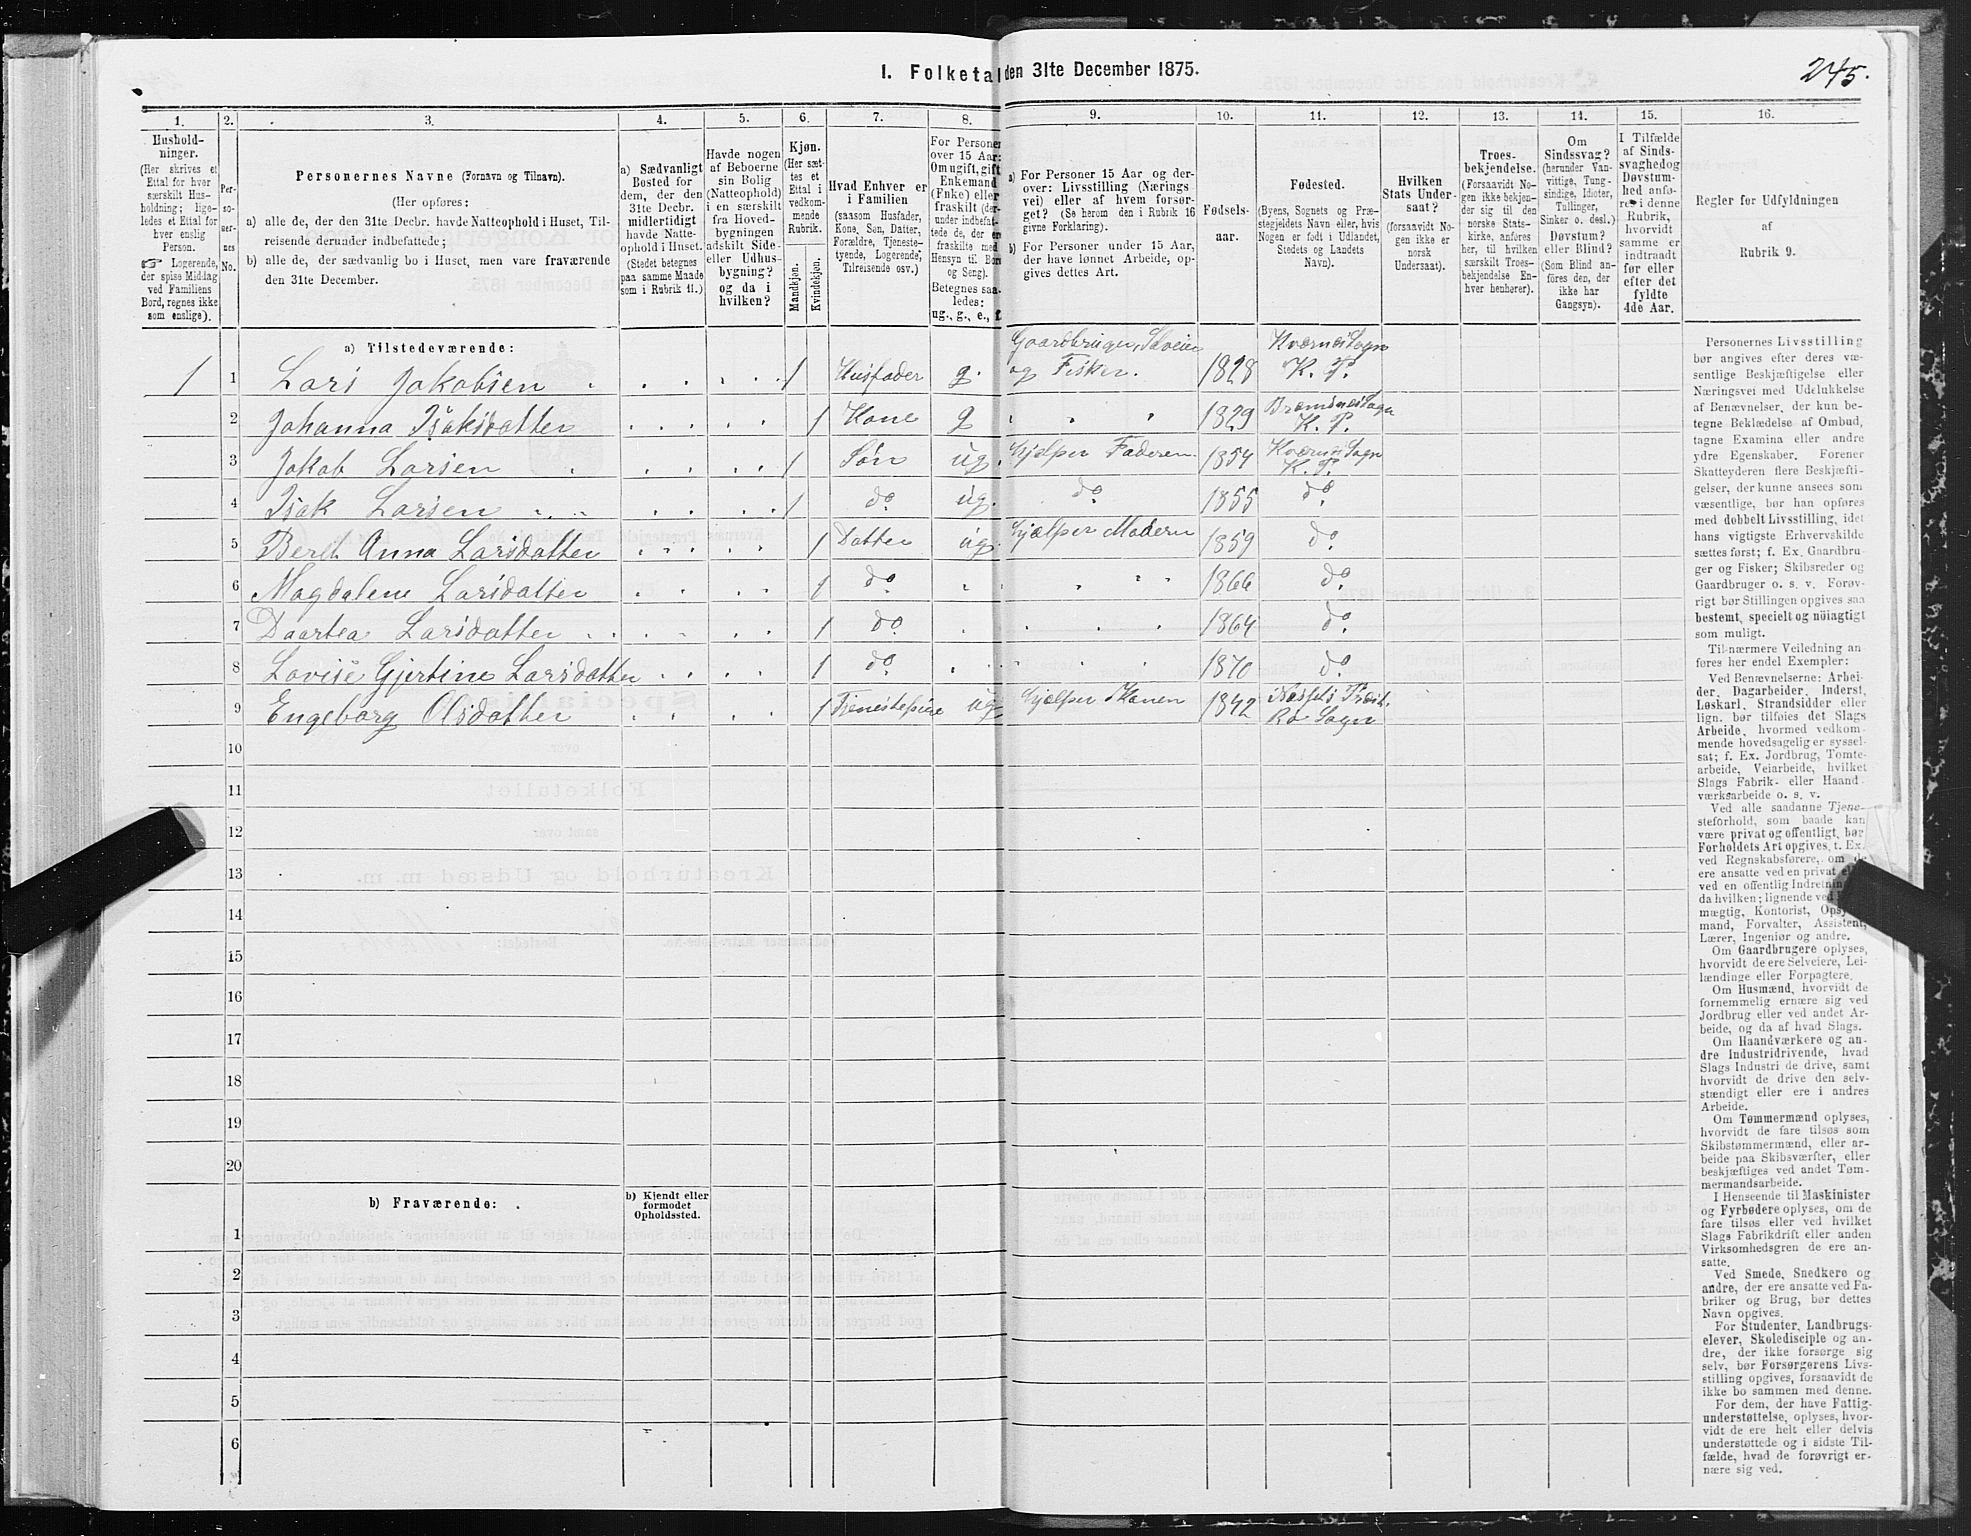 I. Folketal den 31te December 1875.
245.
1. 2. 3. 4. 5. 6. 7. 8. 9. 10. 11. 12. 13. 14. 15. 16.
Hushold-
ninger.
(Her skrives et
Ettal for hver
særskilt Hus-
holdning; lige-
ledes et Ettal for
hver enslig
Person.
☞ Logerende,
der spise Middag
ved Familiens
Bord, regnes ikke
som enslige).
Per-
so-
ner-
nes
No.
Personernes Navne (Fornavn og Tilnavn).
(Her opføres:
a) alle de, der den 31te Decbr. havde Natteophold i Huset, Til-
reisende derunder indbefattede;
b) alle de, der sædvanlig bo i Huset, men vare fraværende
den 31te December.
a) Sædvanligt
Bosted for
dem, der den
31te Decbr.
midlertidigt
havde Natte-
ophold i Huset.
(Stedet betegnes
paa samme Maade
som i Rubrik 11.)
Havde nogen
af Beboerne
sin Bolig
(Natteophold)
i en særskilt
fra Hoved-
bygningen
adskilt Side-
eller Udhus-
bygning?
og da i
hvilken?
Kjøn.
(Her sæt-
tes et
Ettal i
vedkom-
mende
Rubrik.
Mandkjøn.
Kvindekjøn.
Hvad Enhver er
i Familien
(saasom Husfader,
Kone, Søn, Datter,
Forældre, Tjeneste-
tyende, Logerende,
Tilreisende osv.)
For Personer
over 15 Aar:
Om ugift, gift,
Enkemand
(Enke) eller
fraskilt (der-
under indbefat-
tede de, der ere
fraskilte med
Hensyn til Bord
og Seng).
Betegnes saa-
ledes:
ug., g., e., f.
a) For Personer 15 Aar og der-
over: Livsstilling (Nærings-
vei) eller af hvem forsør-
get? (Se herom den i Rubrik 16
givne Forklaring).
b) For Personer under 15 Aar,
der have lønnet Arbeide, op-
gives dettes Art.
Fødsels-
aar.
Fødested.
(Byens, Sognets og Præ-
stegjeldets Navn eller, hvis
Nogen er født i Udlandet,
Stedets og Landets
Navn).
Hvilken
Stats Under-
saat?
(forsaavidt No-
gen ikke er
norsk
Undersaat).
Troes-
bekjendelse.
(Forsaavidt No-
gen ikke bekjen-
der sig til den
norske Stats-
kirke, anføres
her, til hvilken
særskilt Troes-
bekjendelse En-
hver henhører).
Om
Sindssvag?
(herunder Van-
vittige, Tung-
sindige, Idioter,
Tullinger,
Sinker o. desl.)
Døvstum?
eller Blind?
(Som Blind an-
føres den, der
ikke har
Gangsyn).
I Tilfælde
af Sinds-
svaghed og
Døvstum-
hed anfø-
res i denne
Rubrik,
hvorvidt
samme er
indtraadt
før eller
efter det
fyldte
4de Aar.
Regler for Udfyldningen
af
Rubrik 9.
a) Tilstedeværende:
Gaardbruger, Selveier
1 1 Lars Jakobsen 1 Husfader g. og Fisker. 1828 Kværnes Sogn K. P.
2 Johanna Isaksdatter 1 Kone g 1829 Bremsnes Sogn K. P.
3 Jakob Larsen 1 Søn ug. hjælper Faderen 1854 Kværnes Sogn K. P.
4 Isak Larsen 1 do ug. do 1855 do
5 Berit Anna Larsdatter 1 Datter ug. hjælper Moderen 1859 do.
6 Magdalene Larsdatter 1 do. 1866 do.
7 Daartea Larsdatter 1 do. 1864 do.
8 Lovise Gjertine Larsdatter 1 do. 1870 do.
9 Engeborg Olsdatter 1 Tjenestepige ug hjælper Konen 1842 Nessets Præst. Rø Sogn
10
11
12
13
14
15
16
17
18
19
20
b) Fraværende:
b) Kjendt eller
formodet
Opholdssted.
1
2
3
4
5
6
Personernes Livsstilling
bør angives efter deres væ-
sentlige Beskjæftigelse eller
Næringsvei med Udelukkelse
af Benævnelser, der kun be-
tegne Beklædelse af Ombud,
tagne Examina eller andre
ydre Egenskaber. Forener
Skatteyderen flere Beskjæfti-
gelser, der kunne ansees som
væsentlige, bør han opføres
med dobbelt Livsstilling, idet
hans vigtigste Erhvervskilde
sættes først; f. Ex. Gaardbru-
ger og Fisker; Skibsreder og
Gaardbruger o. s. v. Forøv-
rigt bør Stillingen opgives saa
bestemt, specielt og nöiagtigt
som muligt.
Til nærmere Veiledning an-
føres her endel Exempler:
Ved Benævnelserne: Arbei-
der, Dagarbeider, Inderst,
Løskarl, Strandsidder eller
lign. bør tilføies det Slags
Arbeide, hvormed vedkom-
mende hovedsagelig er syssel-
sat; f. Ex. Jordbrug, Tomte-
arbeide, Veiarbeide, hvilket
Slags Fabrik- eller Haand-
værksarbeide o. s. v.
Ved alle saadanne Tjene-
steforhold, som baade kan
være privat og offentligt, bør
Forholdets Art opgives, t. Ex.
ved Regnskabsførere, om de
ere ansatte ved en privat eller
ved en offentlig Indretning
da hvilken; lignende ved
mægtig, Kontorist, Opsyns-
mand, Forvalter, Assistent,
Lærer, Ingeniør og andre.
Om Gaardbrugere oplyses,
hvorvidt de ere Selveiere, Lei-
lændinge eller Forpagtere.
Om Husmænd, hvorvidt de
fornemmelig ernære sig ved
Jordbrug eller ved andet Ar-
beide, og da af hvad Slags.
Om Haandværkere og an-
dre Industridrivende, hvad
Slags Industri de drive, samt
hvorvidt de drive den selv-
stændigt eller ere i andres
Arbeide.
Om Tømmermænd oplyses,
hvorvidt de fare tilsøs som
Skibstømmermænd, eller ar-
beide paa Skibsværfter, eller
beskjæftiges ved andet Tøm-
mermandsarbeide.
I Henseende til Maskinister
og Fyrbødere oplyses, om de
fare tilsøs eller ved hvilket
Slags Fabrikdrift eller anden
Virksomhedsgren de ere an-
satte.
Ved Smede, Snedkere og
andre, der ere ansatte ved Fa-
briker og Brug, bør dettes
Navn opgives.
For Studenter, Landbrugs-
elever, Skoledisciple og an-
dre, der ikke forsørge sig
selv, bør Forsørgerens Livs-
stilling opgives, forsaavidt de
ikke bo sammen med denne.
For dem, der have Fattig-
understøttelse, oplyses, hvor-
vidt de ere helt eller delvis
understøttede og i sidste Til-
fælde, hvad de forøvrigt er-
nære sig ved.